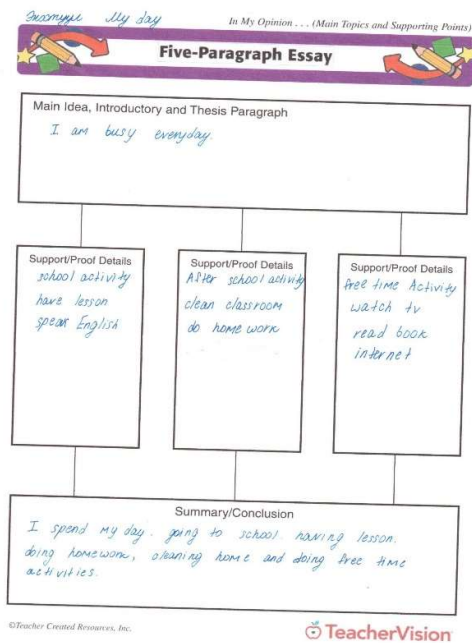 My day
In My Opinion . . . (Main Topics and Supporting Points)
Five-Paragraph Essay
Main Idea, Introductory and Thesis Paragraph
I am busy everyday.
Support/Proof Details
school activity
have lesson
speak English
Support/Proof Details
After school activity
clean classroom
do home work
Support/Proof Details
free time Activity
watch tv
read book
internet
Summary/Conclusion
I spend my day. going to school. having lesson.
doing homework, cleaning home and doing free time
activities.
©Teacher Created Resources, Inc.
TeacherVision